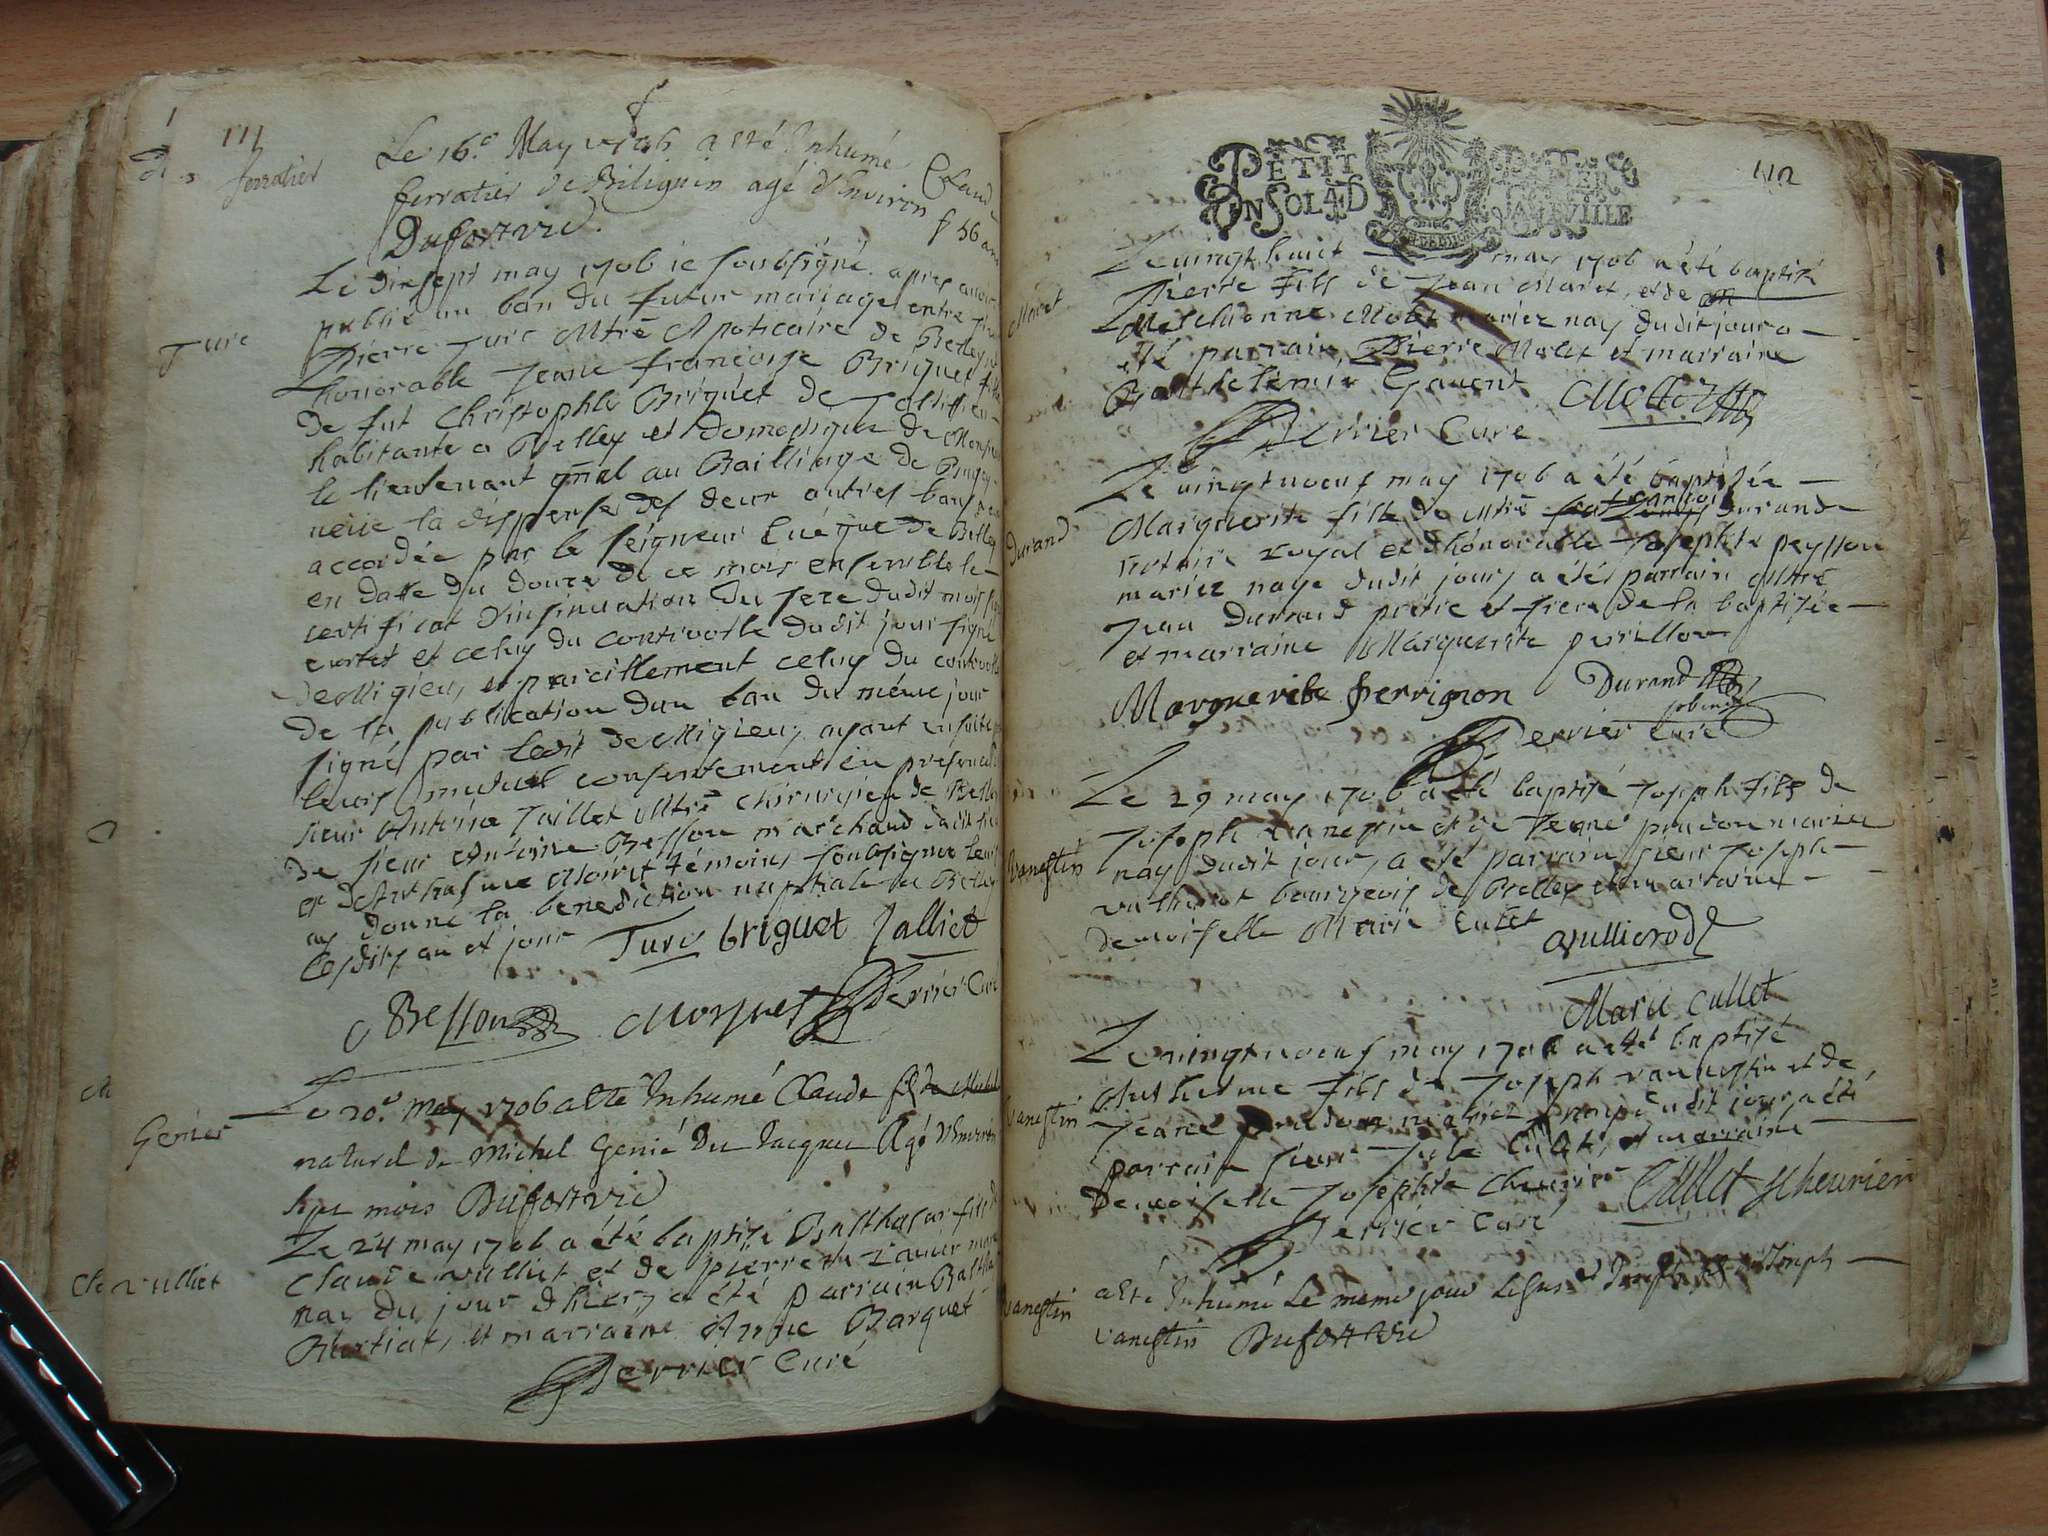 111
ferratier
Le 16.e May 1706 a eté Inhumé Claude
ferratier de Biliguin agé d'Environ 56 ans
Dufortvie.
Ture
Le dixsept may 1706 ie soubsigné apres avoir
publié un ban du futur mariage entre
Pierre Ture Mtre Apoticaire de Belley et
honorable Jeane françoise Briguet fille
de fut Christophle Briguet de
habitante a Belley et domestique de
le lieutenant gnal au Bailliage de Bugey
veüe la dispense des deux autres bans
accordée par le seigneur Euéque de Belley
en datte du douze de ce mois ensemble le
certificat d'insinuation du seze dudit mois
et celuy du controolle dudit jour signé
de Migieu, et pareillement celuy du controolle
de la publication dun ban du méme jour
signé par ledit de Migieu, ayant ensuite
leurs mutuel consentement en presence de
sieur Antoine Jalliet Mtre chirurgien de Belley
de sieur Antoine Besson marchand dudit lieu
et d'Anthelme témoins soubsignes leur
ay donné la benediction nuptiale a Belley
lesdits an et jour Ture briguet Jalliet
Besson Perrier Curé
Genier
Le 20.e may 1706 a eté Inhumé Claude fils de Michel
naturel de Michel Genié du Jacques Agé d'Environ
sept mois Dufortvie
Vulliet
Le 24 may 1706 a été baptisé Balthasar fils de
Claude vulliet et de pierrete
nay du jour d'hier, a été parrain Balthasar
et marraine Anne Barquet
Perrier Curé
112
PETIT PAPIER
UN SOL 4 D LA FEVILLE
Moret
Le vingt huict may 1706 a été baptisé
Pierre fils de Jean Moret, et de
mariez nay dudit jour a
été parrain Pierre Molet et marraine
Perrier Curé
Durand
Le vingtnoeuf may 1706 a été baptisée
Marguerite fille de Mtre françois durand
notaire royal et d'honorable Josephte peysson
mariez naye dudit jour, a été parrain Mtre
Jean Durand prétre et frere de la baptisée
et marraine Marguerite
Marguerite perrignon Durand
Perrier Curé
Vanestin
Le 29 may 1706 a été baptisé Joseph fils de
Joseph vanestin et de Jeane prudon mariez
nay dudit jour, a été parrain sieur Joseph
bourgeois de Belley et marraine
demoiselle Marie Cullet
Marie Cullet
Vanestin
Le vingtnoeuf may 1706 a été baptisé
Anthelme fils de Joseph vanestin et de
Jeane prudon mariez nay dudit jour a été
parrain sieur Cullet, et marraine
Demoiselle Josephte Cheurier Cullet J cheurier
Perrier Curé
Vanestin
a eté Inhumé Le meme jour Joseph
vanestin Dufortvie